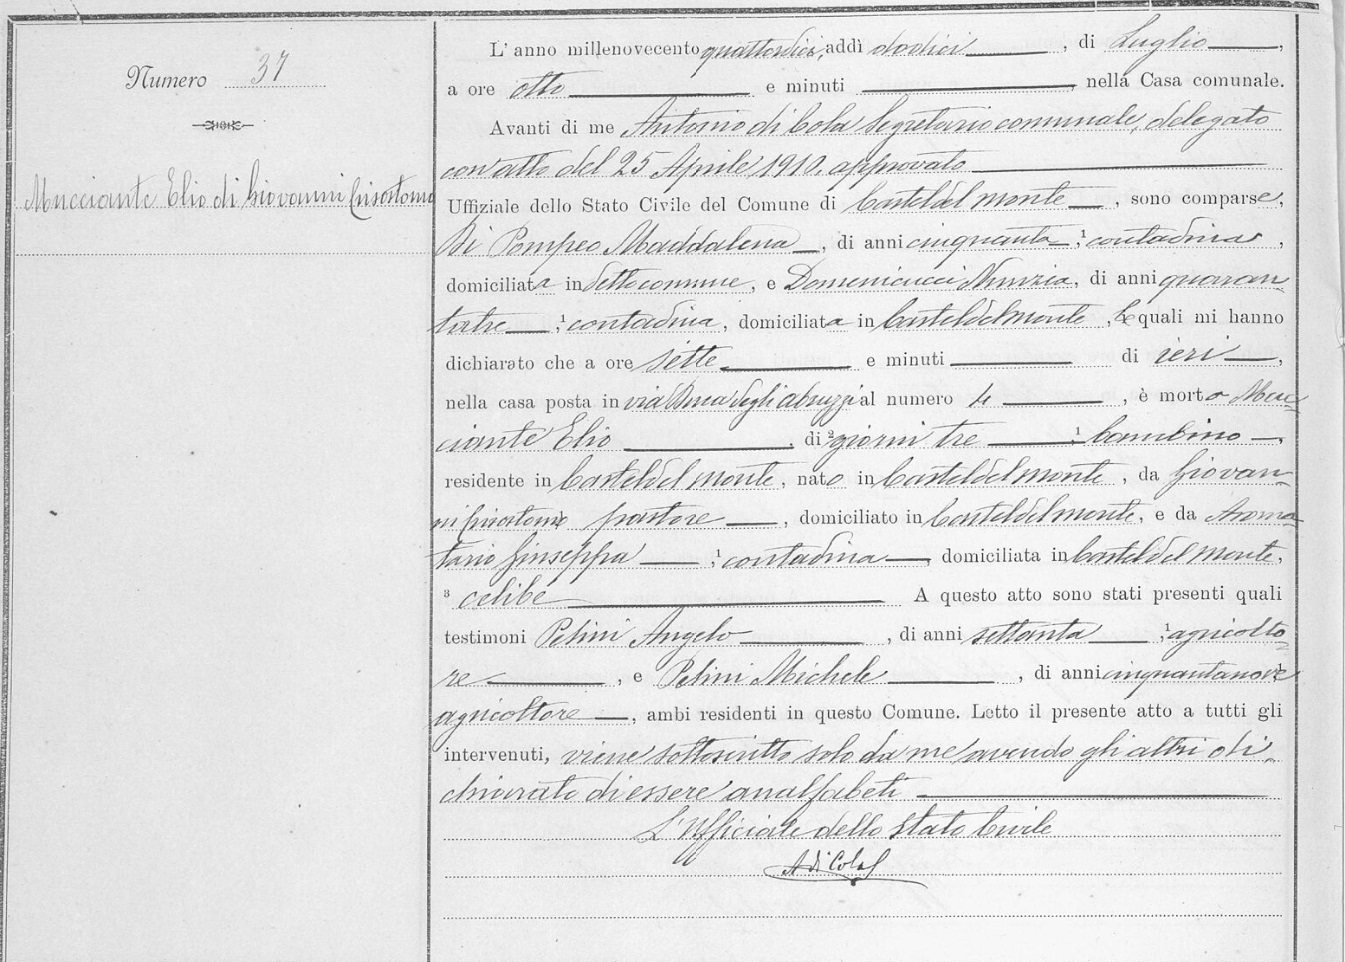 Numero 37
Mucciante Elio di Giovanni Crisostomo
L' anno millenovecento quattordici, addì dodici, di Luglio,
a ore otto e minuti nella Casa comunale.
Avanti di me Antonio di Cola Segretario comunale, delegato
con atto del 25 Aprile 1910, approvato
Uffiziale dello Stato Civile del Comune di Casteldelmonte, sono comparse,
Di Pompeo Maddalena, di anni cinquanta, ¹ contadina,
domiciliata in detto comune, e Domenicucci Nunzia, di anni quaran-
tatre, ¹ contadina, domiciliata in Casteldelmonte, le quali mi hanno
dichiarato che a ore sette e minuti di ieri,
nella casa posta in via Duca degli abruzzi al numero 4, è morto Muc-
ciante Elio, di ² giorni tre, ¹ bambino,
residente in Casteldelmonte, nato in Casteldelmonte, da Giovan-
ni Crisostomo pastore, domiciliato in Casteldelmonte, e da Aroma-
tario Giuseppa, ¹ contadina, domiciliata in Casteldelmonte,
³ celibe A questo atto sono stati presenti quali
testimoni Petini Angelo, di anni settanta, ¹ agricolto-
re, e Petini Michele, di anni cinquantanove ¹
agricoltore, ambi residenti in questo Comune. Letto il presente atto a tutti gli
intervenuti, viene sottoscritto solo da me avendo gli altri di-
chiarato di essere analfabeti
L'Ufficiale dello Stato Civile
A di Cola